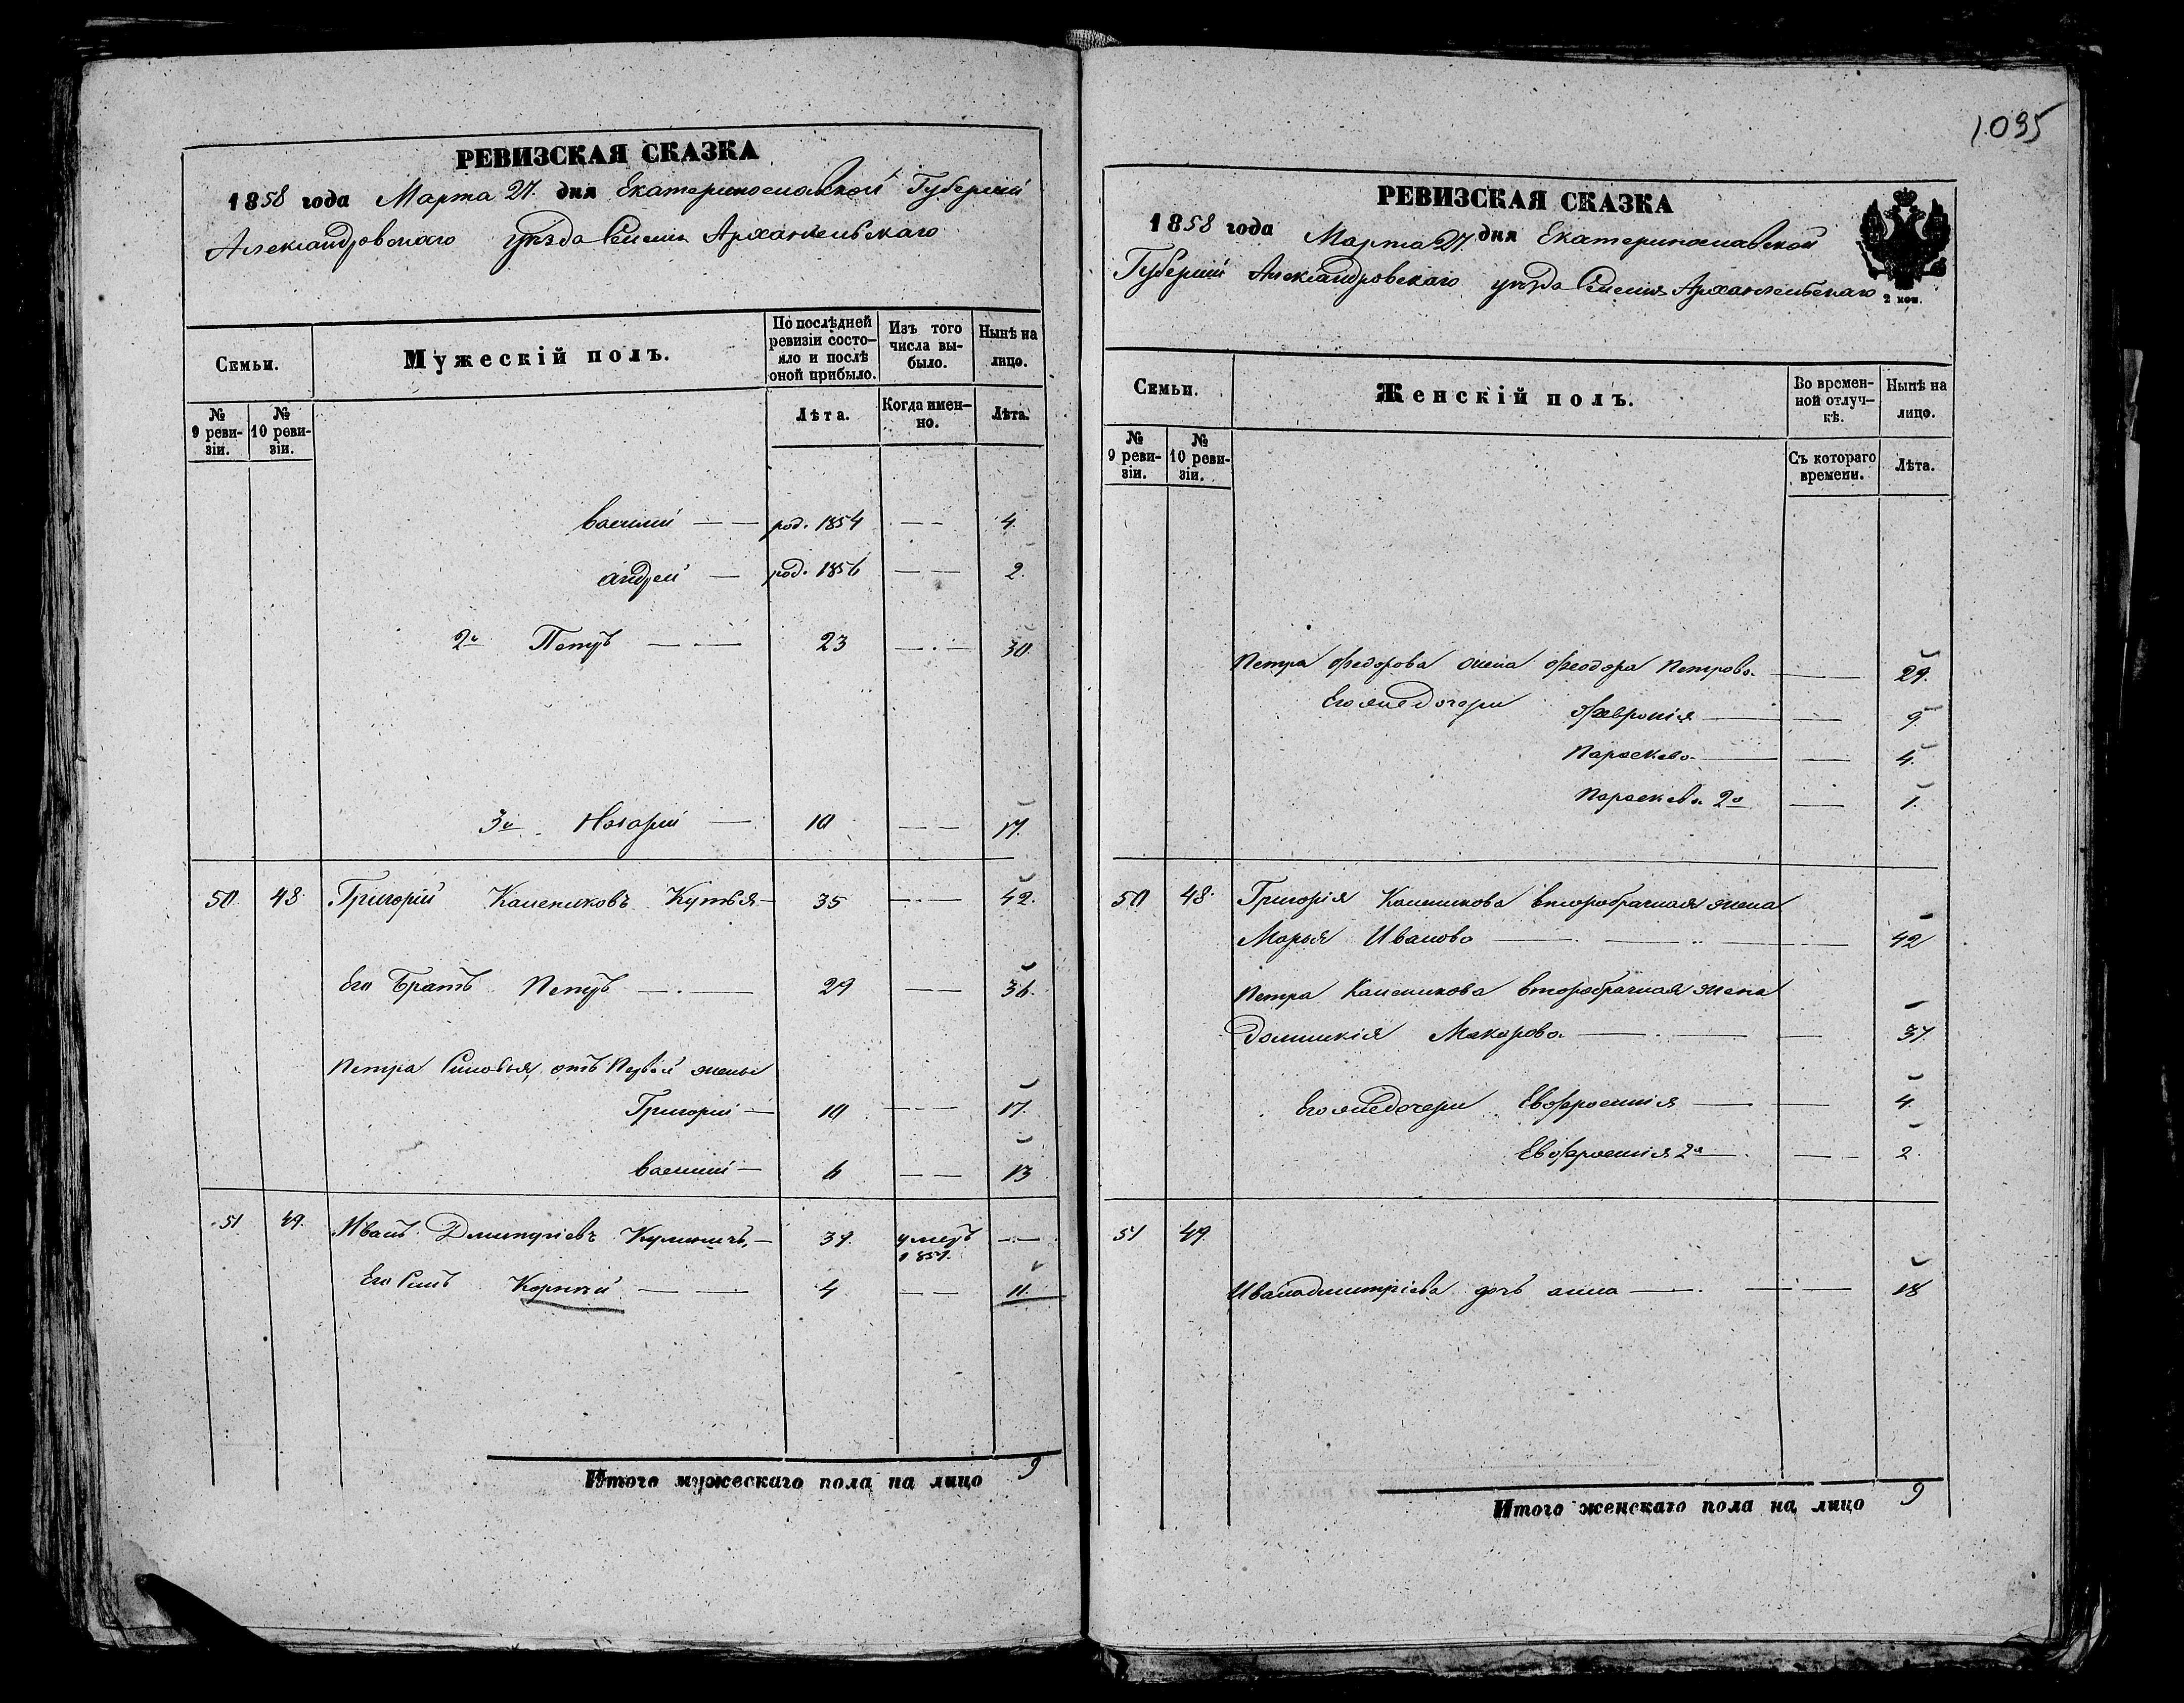 РЕВИЗСКАЯ СКАЗКА
1858 года Марта 27. дня Екатеринославской Губернiи
Александровскаго уѣзда Селенiя Архангельскаго
Семьи.
Мужескiй полъ.
По послѣдней ревизiи состояло и послѣ оной прибыло.
Изъ того числа выбыло.
Нынѣ на лицо.
№ 9 ревизiи.
№ 10 ревизiи.
Лѣта.
Когда именно.
Лѣта.
Василий — — род. 1854 — — 4.
Андрей — род. 1856 — — 2.
2й Петръ — — 23 — — 30.
3й Назарiй — 10 — — 17.
50. 48. Григорiй Калениковъ Кутья — 35 — — 42.
Его Братъ Петръ — — 29 — — 36.
Петра Сыновья, отъ Первой жены
Григорiй — 10 — — 17.
Василiй — 6 — — 13
51 49. Иванъ Дмитрiевъ — 37. умеръ 1857. —
Его Сынъ Корнѣй — — 4 — — 11.
Итого мужескаго пола на лицо 9
1095
РЕВИЗСКАЯ СКАЗКА
1858 года Марта 27. дня Екатеринославской
Губернiи Александровскаго уѣзда Селенiя Архангельскаго
2 коп.
Семьи.
Женскiй полъ.
Во временной отлучкѣ.
Нынѣ на лицо.
№ 9 ревизiи.
№ 10 ревизiи.
Съ котораго времени.
Лѣта.
Петра Федорова жена Феодора Петрова — — 29.
Его же Дочери Февронiя — — 9.
Параскева — — 4.
Параскева 2я — 1.
50 48. Григорiя Каленикова второбрачная жена
Марья Иванова — — 42
Петра Каленикова второбрачная жена
Домникiя Макарова — — 37.
Его же дочери Евфросинiя — — 4.
Евфросинiя 2я — — 2.
51 49.
Ивана дмитрiева дочь анна — — 18
Итого женскаго пола на лицо 9